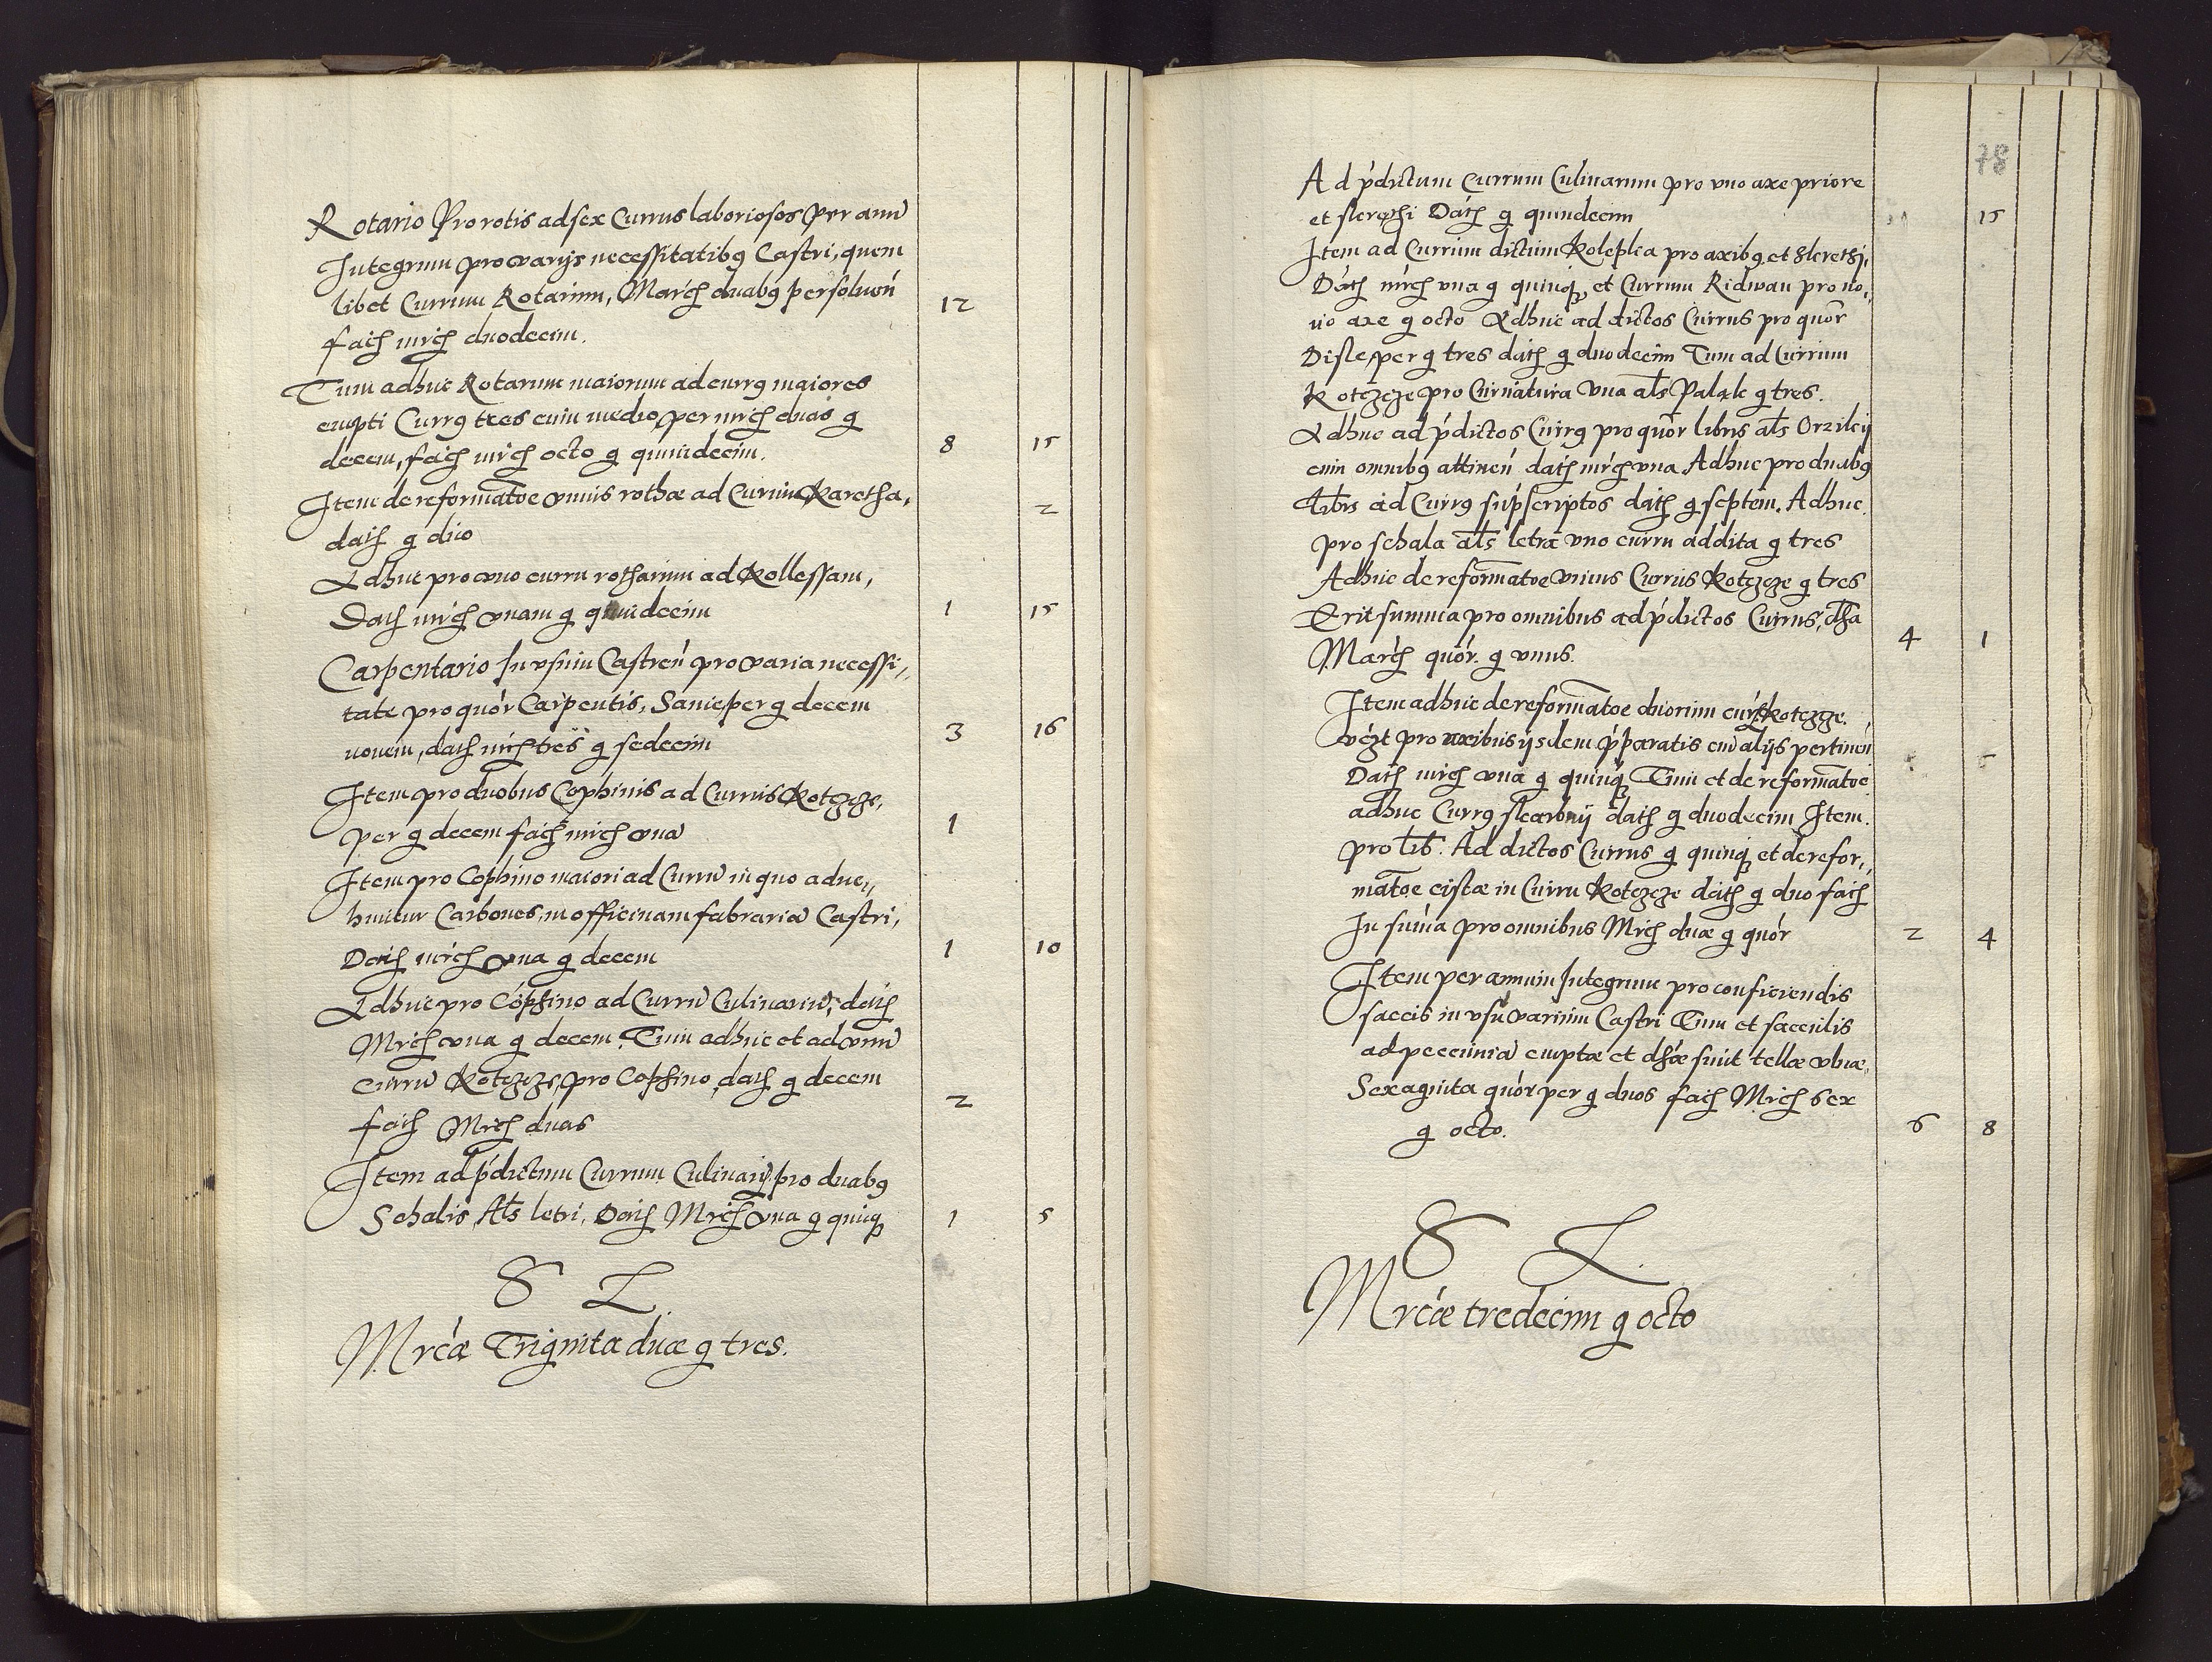 Rotario Pro rotis ad sex Currus laboriosos per annū
Integrum pro varijs necessitatibȝ Castri, quem
libet Currum Rotarum, March duabȝ persoluen̄ 12
facit mrch duodecim.
Tum adhuc Rotarum maiorum ad currȝ maiores
empti Currȝ tres cum medio, per mrch duas g
decem, facit mrch octo g quindecim. 8 15
Item de reformat̄oe vnius rothae ad Currum Karetha,
dath g duo 2
Adhuc pro vno curru rotharum ad Kollessam,
Dath mrch vnam g quindecim 1 15
Carpentario In vsum Castren̄ pro varia necessi,,
tate pro quor Carpentis, Sanie per g decem
novem, dath mrch tres g sedecim 3 16
Item pro duobus Cophinis ad Currus Kotczcze,
per g decem facit mrch vna 1
Item pro Cophino maiori ad Currū in quo adve,,
huntur Carbones, in officinam fabrariā Castri,
Dath mrch vna g decem 1 10
Adhuc pro Cophino ad Currū Culinariū, dath
Mrch vna g decem. Tum adhuc et ad vnū
currū Kotczcze, pro Cophino, dath g decem
facit Mrch duas 2
Item ad p̄dictum Currum Culinarū, pro duabȝ
Schalis, Als letri, Dath Mrch vna g quinqȝ 1 5
S L
Mrcae Triginta duae g tres.
78
Ad p̄dictum Currum Culinarum pro vno axe priore
et slerothi Dath g quindecim 15
Item ad Currum dictum Koleplia pro axibȝ, et slerethi,
Dath mrch vna g quinqȝ, et Currum Ridwan pro no,,
uo axe g octo Adhuc ad dictos Currus pro quor
Disle, per g tres dath g duodecim Tum ad Currum
Kotczcze pro Curuatura vna als Paląk g tres.
Adhuc ad p̄dictos Currȝ pro quor libris als Orzilcij
cum omnibȝ attinen̄ dath mrch vna Adhuc pro duabȝ
libris ad Currȝ sup̄scriptos dath g septem. Adhuc
pro schala als letra vno curru addita g tres
Adhuc de reformatoe vnius Currus Kotczcze g tres
Erit summa pro omnibus ad p̄dictos Currus, dta
March quor. g vnus. 4 1
Item adhuc de reformatoe duorum currū Kotczcze.
vczt pro axibus ijsdem p̄paratis cū alijs pertinen̄
Dath mrch vna g quinqȝ Tum et de reformatoe
adhuc Currȝ skarbnij dath g duodecim Item.
pro lib. Ad dictos Currus g quinqȝ et de refor,,
matoe cistae in Curru Kotczcze dath g duo facit
In suma pro omnibus Mrch duae g quor 2 4
Item per annum Integrum pro conficiendis
saccis in vsū varium Castri Tum et sacculis
ad pecuniā emptae et dtae sunt tellae vlnae,
Sexaginta quor per g duos facit Mrch sex
g octo. 6 8
S L.
Mrcae tredecim g octo